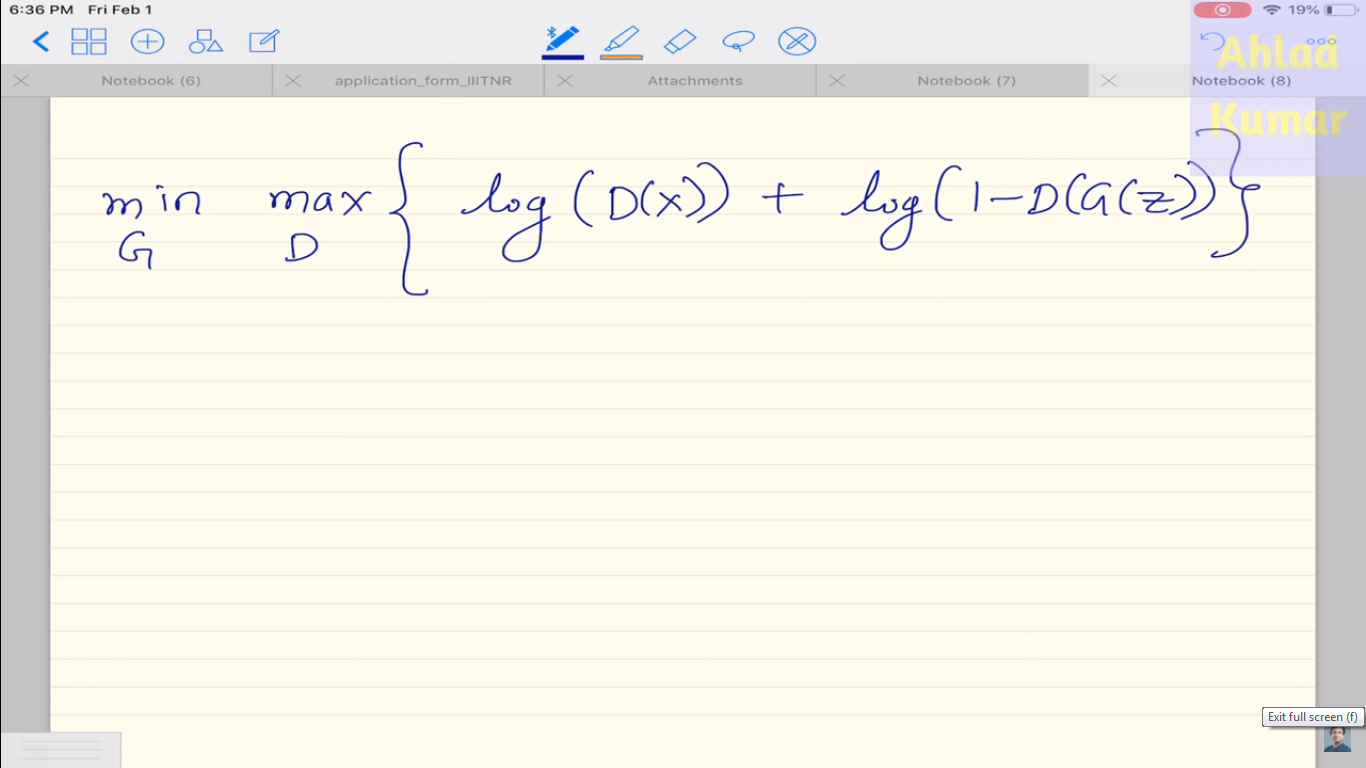 6:36 PM Fri Feb 1 19%
Ahlad
Notebook (6) application_form_IIITNR Attachments Notebook (7) Notebook (8)
Kumar
min max { log (D(x)) + log (1-D(G(z)) }
G D
Exit full screen (f)